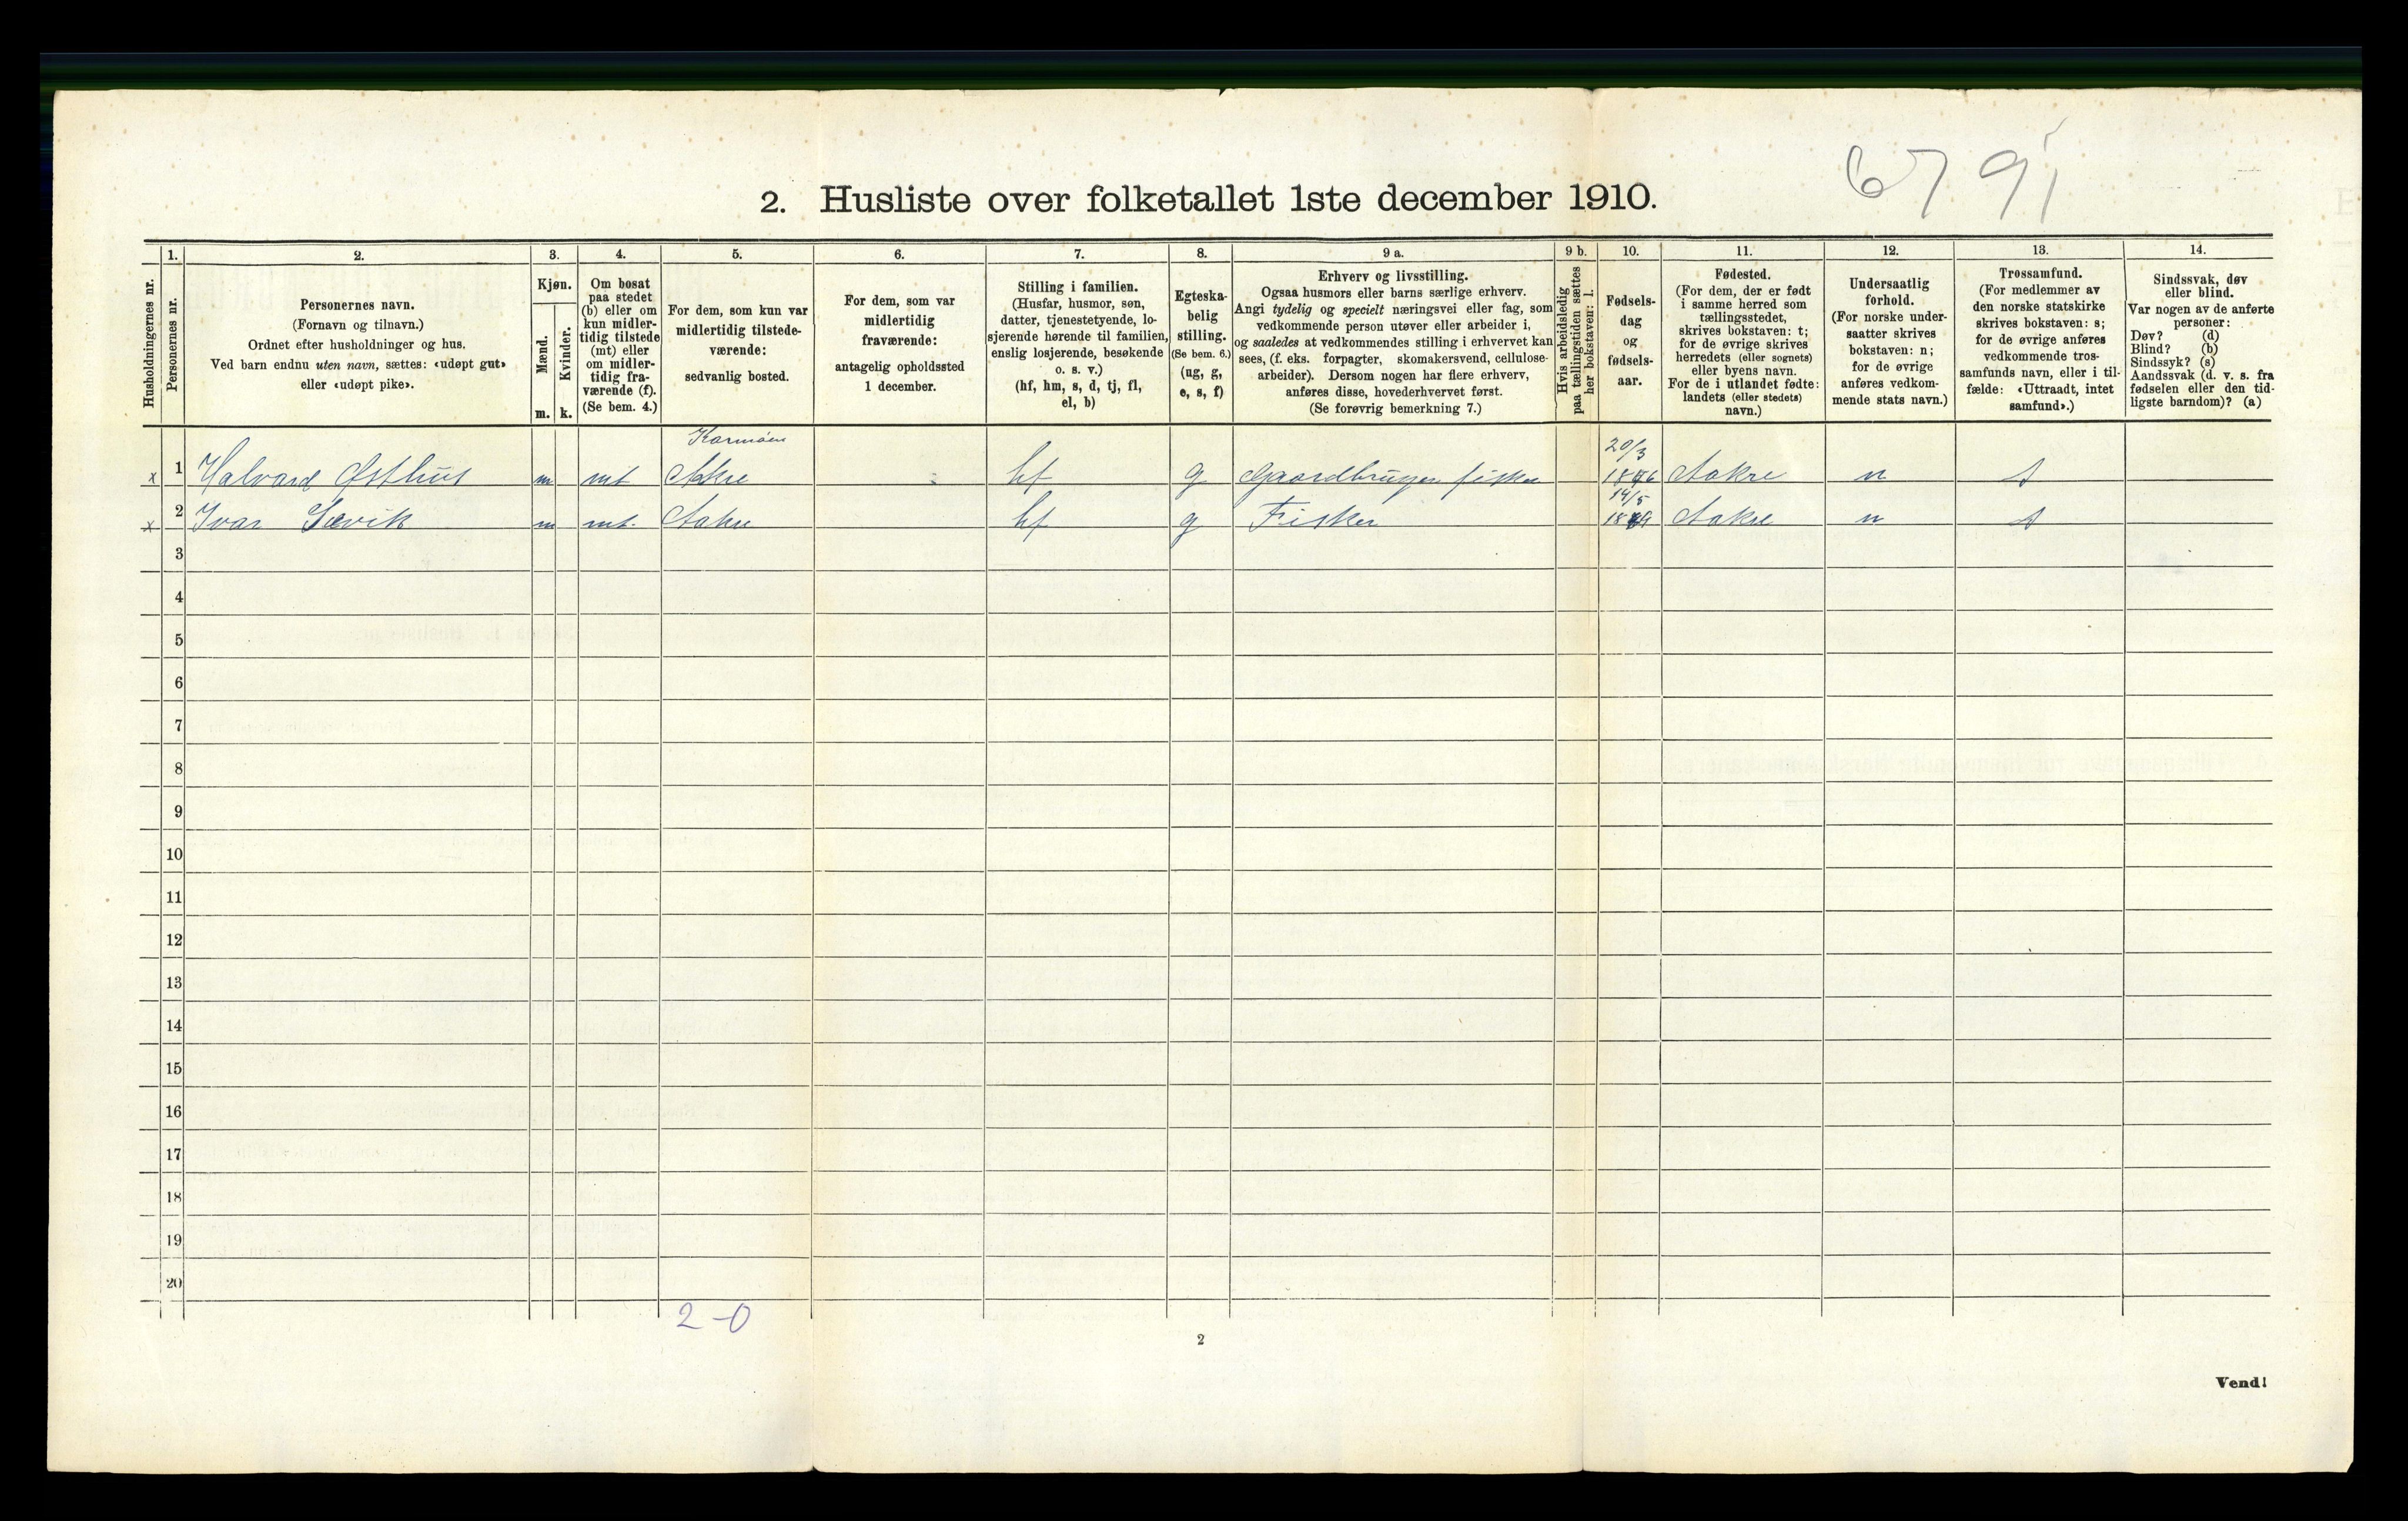 67 91
2. Husliste over folketallet 1ste december 1910.
Husholdningernes nr.
1.
Personernes nr.
2.
Personernes navn.
(Fornavn og tilnavn.)
Ordnet efter husholdninger og hus.
Ved barn endnu uten navn, sættes: «udøpt gut»
eller «udøpt pike».
3.
Kjøn.
Mænd.
Kvinder.
m.
k.
4.
Om bosat
paa stedet
(b) eller om
kun midler-
tidig tilstede
(mt) eller
om midler-
tidig fra-
værende (f).
(Se bem. 4.)
5.
For dem, som kun var
midlertidig tilstede-
værende:
sedvanlig bosted.
6.
For dem, som var
midlertidig
fraværende:
antagelig opholdssted
1 december.
7.
Stilling i familien.
(Husfar, husmor, søn,
datter, tjenestetyende, lo-
sjerende hørende til familien,
enslig losjerende, besøkende
o. s. v.)
(hf, hm, s, d, tj, fl,
el, b)
8.
Egteska-
belig
stilling.
(Se bem. 6.)
(ug, g,
e, s, f)
9 a.
Erhverv og livsstilling.
Ogsaa husmors eller barns særlige erhverv.
Angi tydelig og specielt næringsvei eller fag, som
vedkommende person utøver eller arbeider i,
og saaledes at vedkommendes stilling i erhvervet kan
sees, (f. eks. forpagter, skomakersvend, cellulose-
arbeider). Dersom nogen har flere erhverv,
anføres disse, hovederhvervet først.
(Se forøvrig bemerkning 7.)
9 b.
Hvis arbeidsledig
paa tællingstiden sættes
her bokstaven: l.
10.
Fødsels-
dag
og
fødsels-
aar.
11.
Fødested.
(For dem, der er født
i samme herred som
tællingsstedet,
skrives bokstaven: t;
for de øvrige skrives
herredets (eller sognets)
eller byens navn.
For de i utlandet fødte:
landets (eller stedets)
navn.)
12.
Undersaatlig
forhold.
(For norske under-
saatter skrives
bokstaven: n;
for de øvrige
anføres vedkom-
mende stats navn.)
13.
Trossamfund.
(For medlemmer av
den norske statskirke
skrives bokstaven: s;
for de øvrige anføres
vedkommende tros-
samfunds navn, eller i til-
fælde: «Uttraadt, intet
samfund».)
14.
Sindssvak, døv
eller blind.
Var nogen av de anførte
personer:
Døv? (d)
Blind? (b)
Sindssyk? (s)
Aandssvak (d. v. s. fra
fødselen eller den tid-
ligste barndom)? (a)
Karmøen 20/3
x 1 Halvard Østhus m mt Akre hf g Gaardbruger fisker Aakre n s
14/5
x 2 Ivar Sævik m mt. Aakre hf g Fisker Aakre n s
3
4
5
6
7
8
9
10
11
12
13
14
15
16
17
18
19
20
2-0
2
Vend!